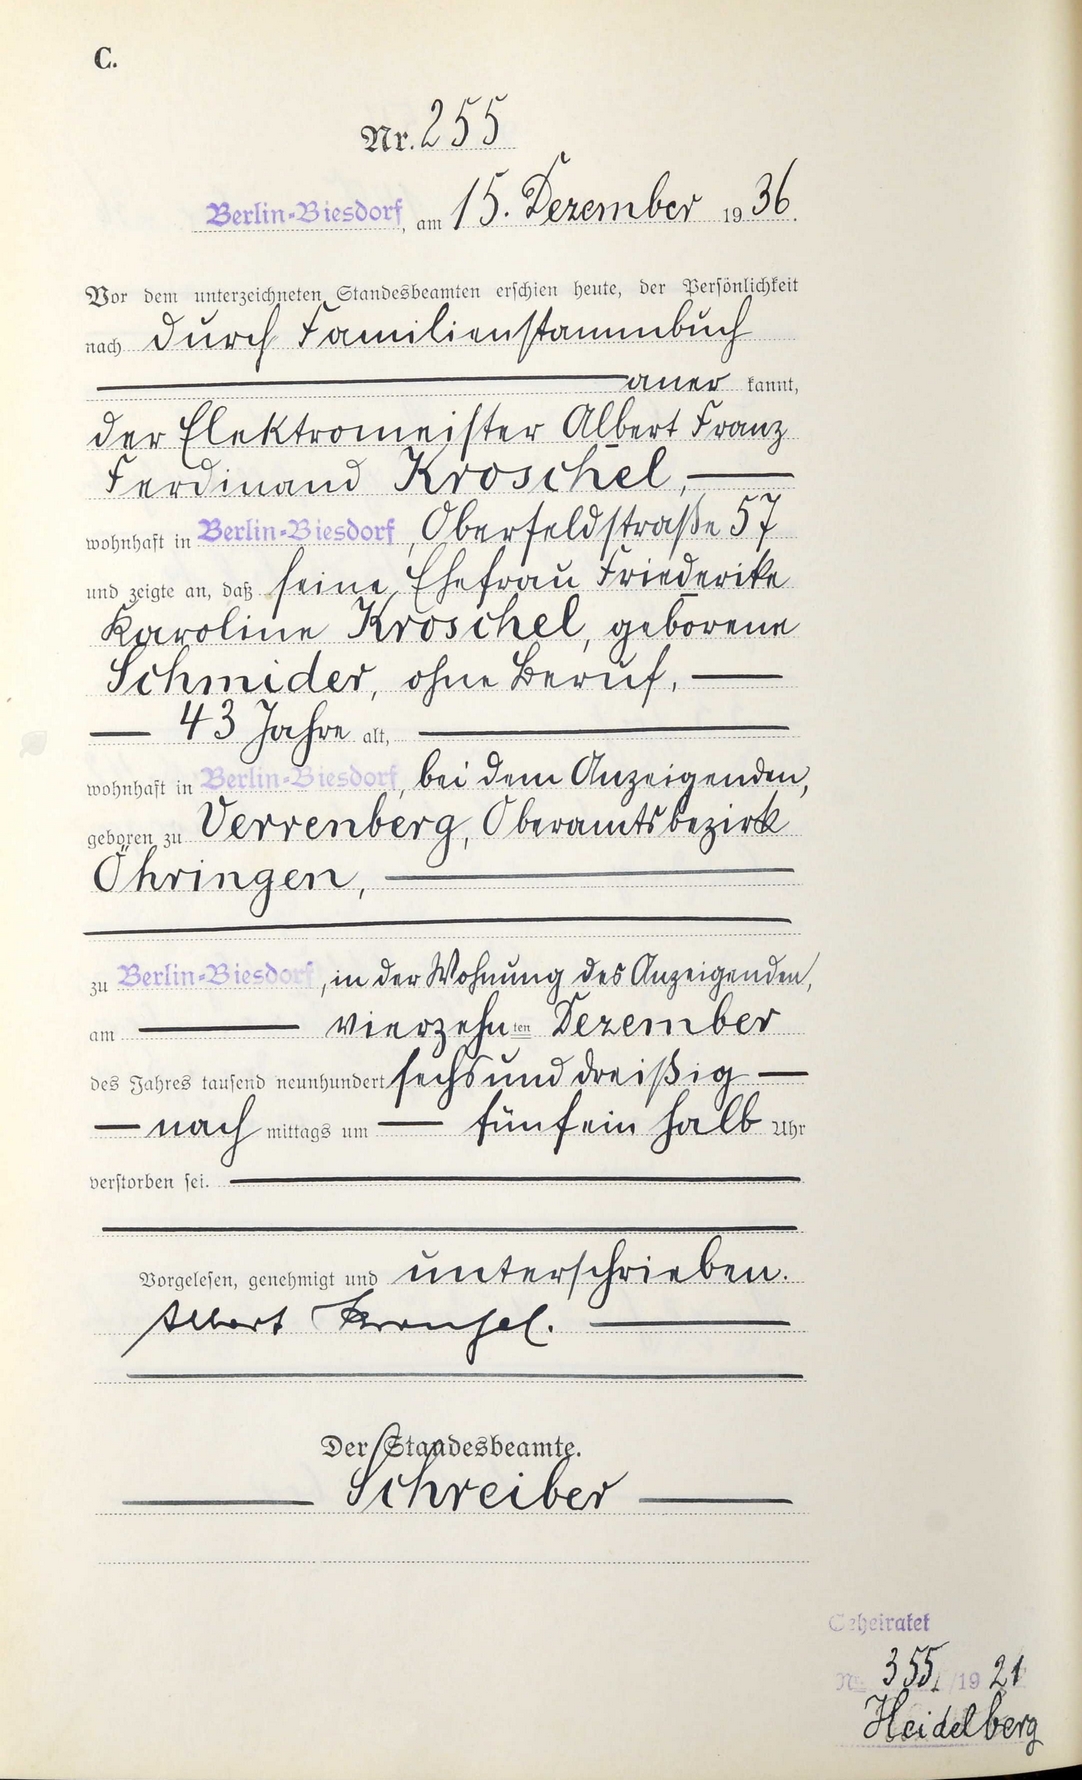 C.
Nr. 255
Berlin-Biesdorf, am 15. Dezember 1936.
Vor dem unterzeichneten Standesbeamten erschien heute, der Persönlichkeit
nach durch Familienstammbuch
aner kannt,
der Elektromeister Albert Franz
Ferdinand Kroschel,
wohnhaft in Berlin-Biesdorf, Oberfeldstraße 57
und zeigte an, daß seine Ehefrau Friederike
Karoline Kroschel, geborene
Schmider, ohne Beruf,
43 Jahre alt,
wohnhaft in Berlin-Biesdorf, bei dem Anzeigenden,
geboren zu Verrenberg, Oberamtsbezirk
Öhringen,
zu Berlin-Biesdorf, in der Wohnung des Anzeigenden,
am vierzehnten Dezember
des Jahres tausend neunhundert sechsunddreißig
nach mittags um fünfeinhalb Uhr
verstorben sei.
Vorgelesen, genehmigt und unterschrieben.
Albert Kroschel.
Der Standesbeamte.
Schreiber
Geheiratet
No 355 /1921
Heidelberg